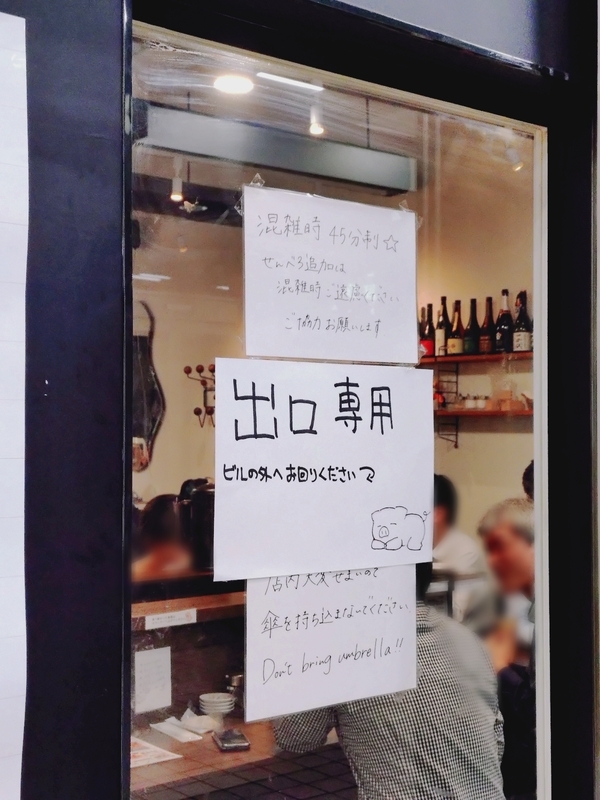 混雑時 45分制☆
せんべろ追加は
混雑時ご遠慮ください
ご協力お願いします
出口専用
ビルの外へお回りください
店内大変せまいので
傘を持ち込まないでください
Don't bring umbrella!!